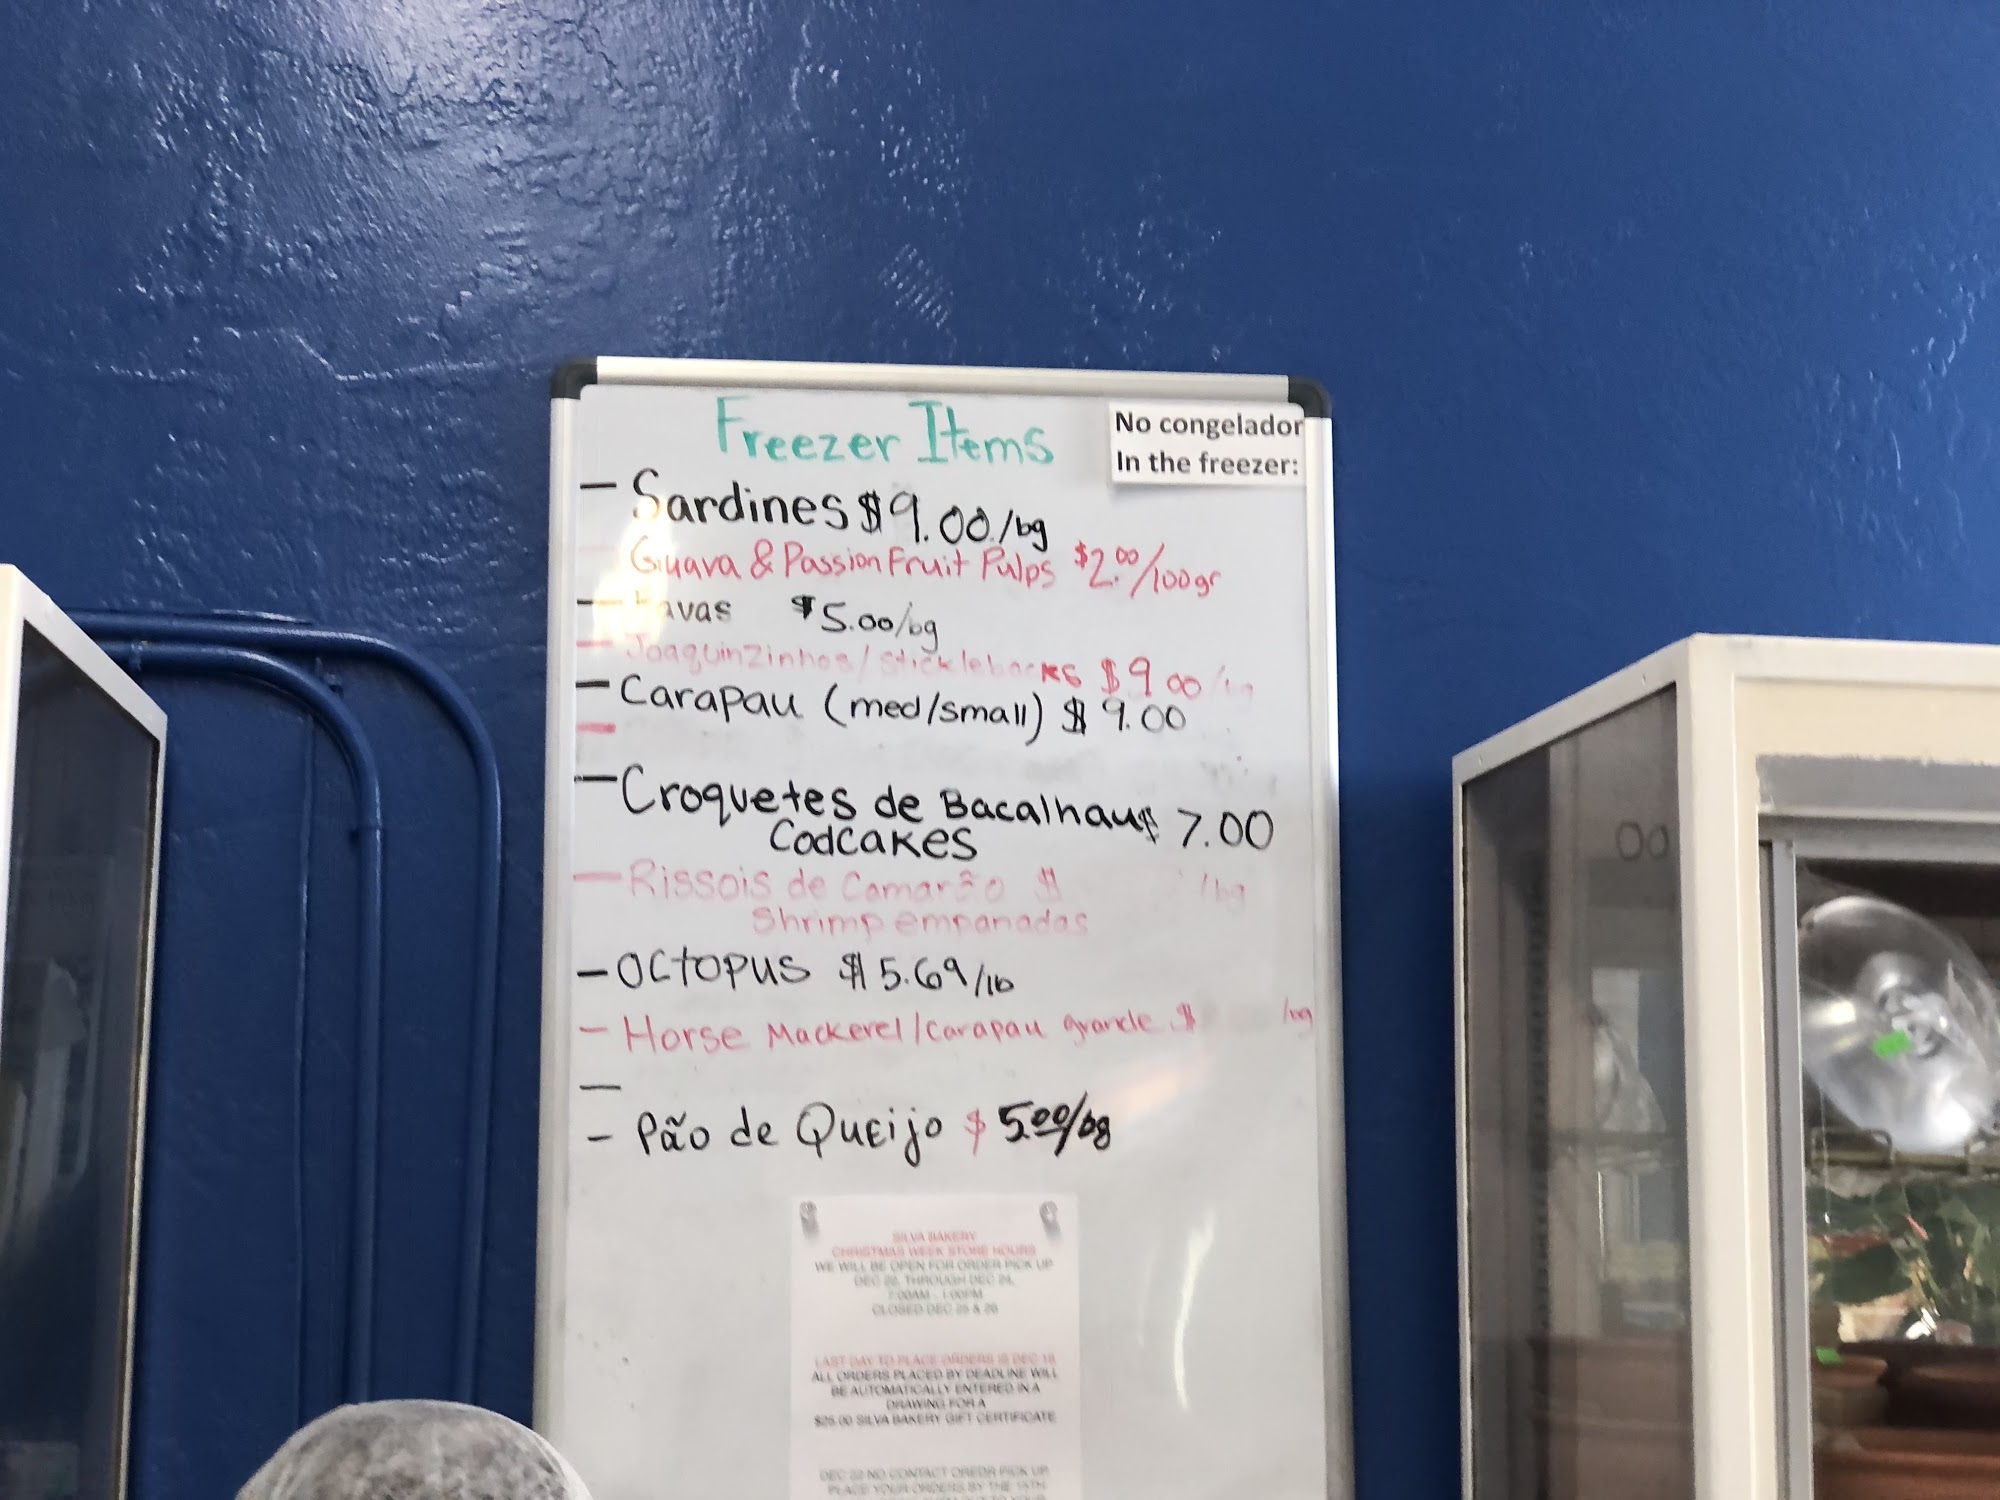 Freezer Items
No congelador
In the freezer:
- Sardines $9.00/bg
Guava & Passion Fruit Pulps $2.00/100gr
- Favas $5.00/bg
- Joaquinzinhos/Sticklebacks $9 00/bg
- Carapau (med/small) $9.00
-
- Croquetes de Bacalhau $ 7.00
Codcakes
- Rissois de Camarão $ /bg
Shrimp empanadas
- Octopus $5.69/lb
- Horse Mackerel/Carapau grande $ /bg
-
- Pão de Queijo $ 5.00/bg
SILVA BAKERY
CHRISTMAS WEEK STORE HOURS
WE WILL BE OPEN FOR ORDER PICK UP
DEC 22, THROUGH DEC 24,
7:00AM - 1:00PM
CLOSED DEC 25 & 26
LAST DAY TO PLACE ORDERS IS DEC
ALL ORDERS PLACED BY DEADLINE WILL
BE AUTOMATICALLY ENTERED IN A
DRAWING FOR A
$25.00 SILVA BAKERY GIFT CERTIFICATE
DEC 22 NO CONTACT OREDR PICK UP
PLACE YOUR ORDERS BY THE
00